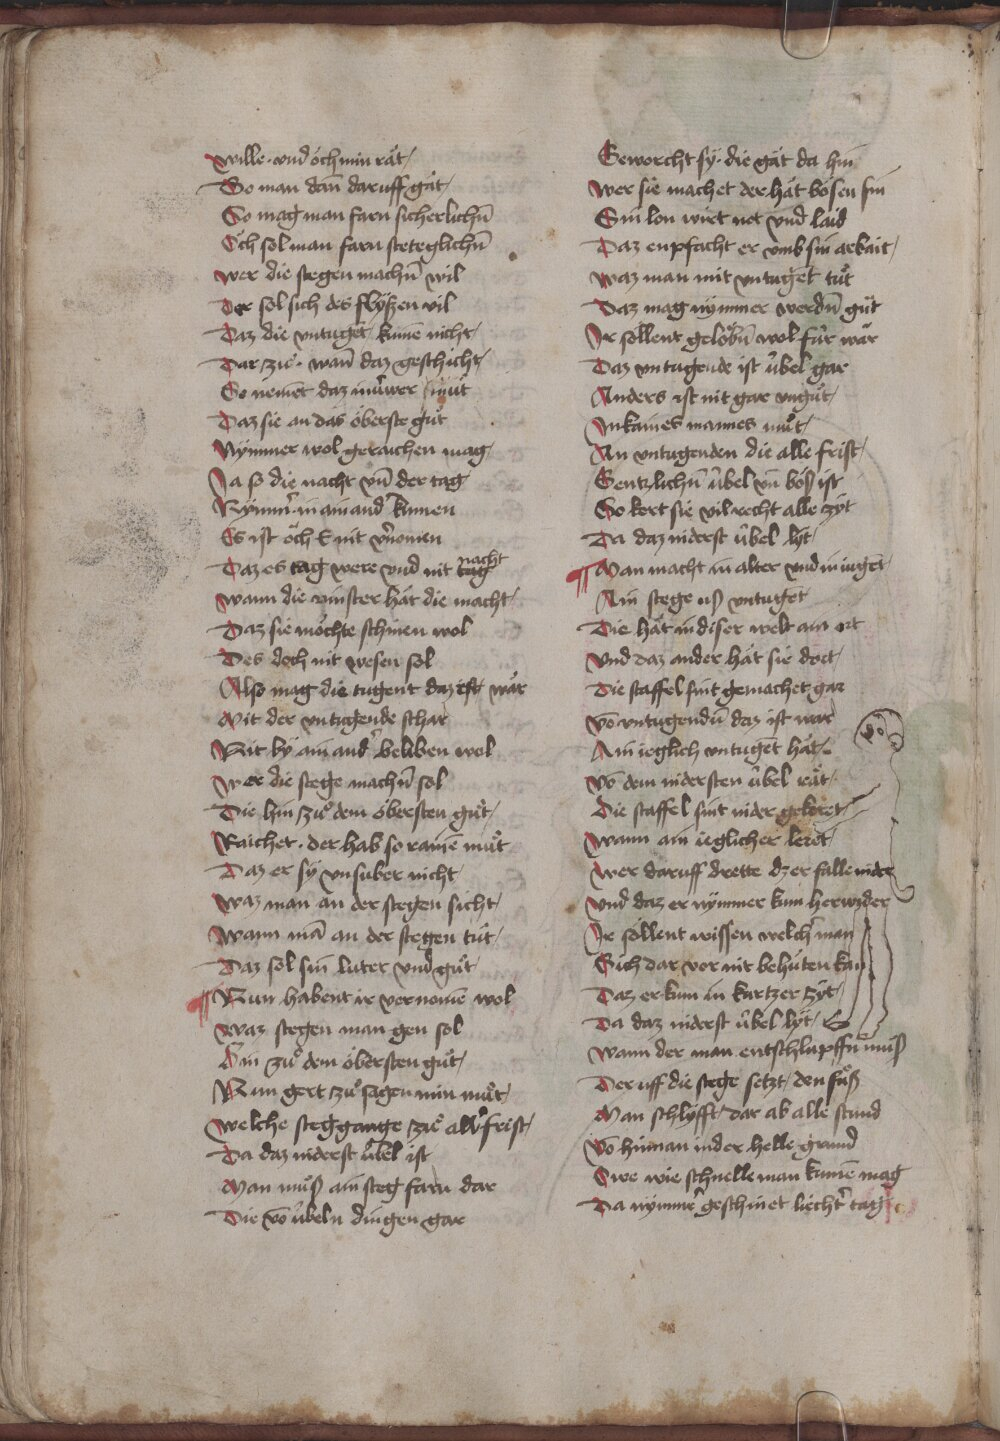 wille · vnd óch min rǎt /
So man dañ daruff gǎt /
So mag man farn sicherlichñ
Óch sol man farn steteglichñ
wer die stegen machñ wil
Der sol sich des flÿszen vil
Daz die vntuget kume nicht /
Dar zů · wañ daz geschicht /
So nement daz in ůwer můt
Daz sie an das óberste gůt
Nÿmmer wol geraichen mag /
Ja so die nacht vñ der tag
Nÿmmer in ain andˀ kumen
Es ist óch E nit vˀnomen
Daz es tag were vnd nit nacht
wann die vinster hǎt die macht /
Daz sie móchte schinen wol
Des doch nit wesen sol
Also mag die tugent daz ist wǎr
Mit der vntugende schar
Nit bÿ ain andˀ beliben wol
wer die stege machñ sol
Die hin zů dem óbersten gůt /
Raichet · der hab so rainē můt
Daz er sÿ vnsuber nicht /
waz man an der stegen sicht /
wann mā an der stegen tůt /
Daz sol sin luter vnd gůt /
Nun habent ir vernomē wol
waz stegen man gen sol
Hin zů dem óbersten gůt /
Nun gert zů sagen min můt /
welche steg gange zů allˀ frist /
Da daz niderst úbel ist
Man můsz ain steg farn dar
Die vō úbeln dingen gar
Geworcht sÿ · die gǎt da hin
wer sie machet der hǎt bósen sin
Sin lon wirt not vnd laid
Daz enpfacht er vmb sin arbait /
waz man mit vntuget tůt
Daz mag nÿmmer werdñ gůt
Ir sóllent gelóbñ wol fúr wǎr
Daz vntugende ist úbel gar
Anders ist nit gar vngůt /
In kaines mannes můt /
An vntugenden die alle frist /
Gentzlichñ úbel vñ bósz ist
So kert sie vil recht alle zÿt
Da daz niderst úbel lÿt /
Man macht in alter vnd in iuget /
Ain stege usz vntuget
Die hǎt in diser welt ain ort
vnd daz ander hǎt sie dort
Die staffel sint gemachet gar
vō vntugendñ daz ist war
Ain ieglich vntuget hǎt /
vō dem nidersten úbel rǎt /
Die staffel sint nider gekeret /
wann ain ieglicher leret /
wer daruff drette dz er falle nider
vnd daz er nÿmmer kum herwider
Ir sóllent wissen welchˀ man
Sich dar vor nit behúten kan
Daz er kum in kurtzer zÿt /
Da daz niderst úbel lÿt /
wann der man entschlupffñ můsz
Der uff die stege setzt / den fůsz
Man schlÿfft / dar ab alle stund
vō hinnan in der helle grund
Swe wie schnelle man kumē mag
Da nÿmmˀ geschinet liechtˀ tag